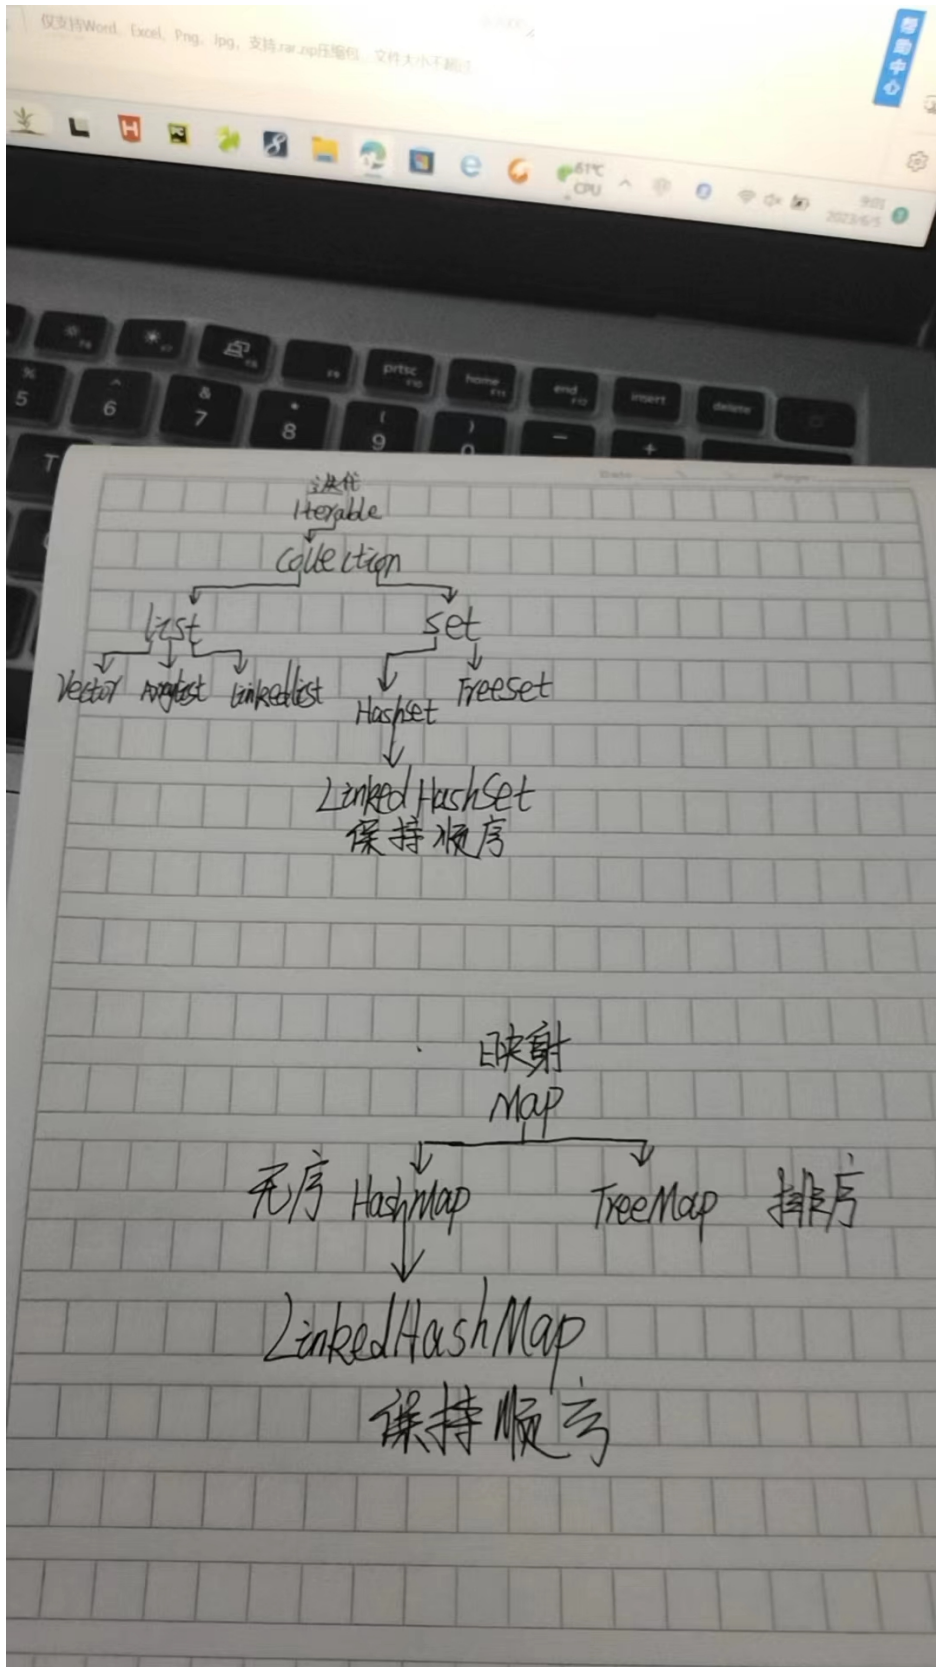 仅支持Word、Excel、Png、Jpg，支持.rar.zip压缩包，文件大小不超过
帮助中心
61℃
CPU
9:01
2023/6/5
prtsc
home
end
insert
delete
%
5
^
6
&
7
*
8
(
9
)
0
T
迭代
Iterable
Collection
List
Set
Vector Arraylist Linkedlist
Hashset
Treeset
LinkedHashSet
保持顺序
映射
Map
无序 HashMap
TreeMap 排序
LinkedHashMap
保持顺序